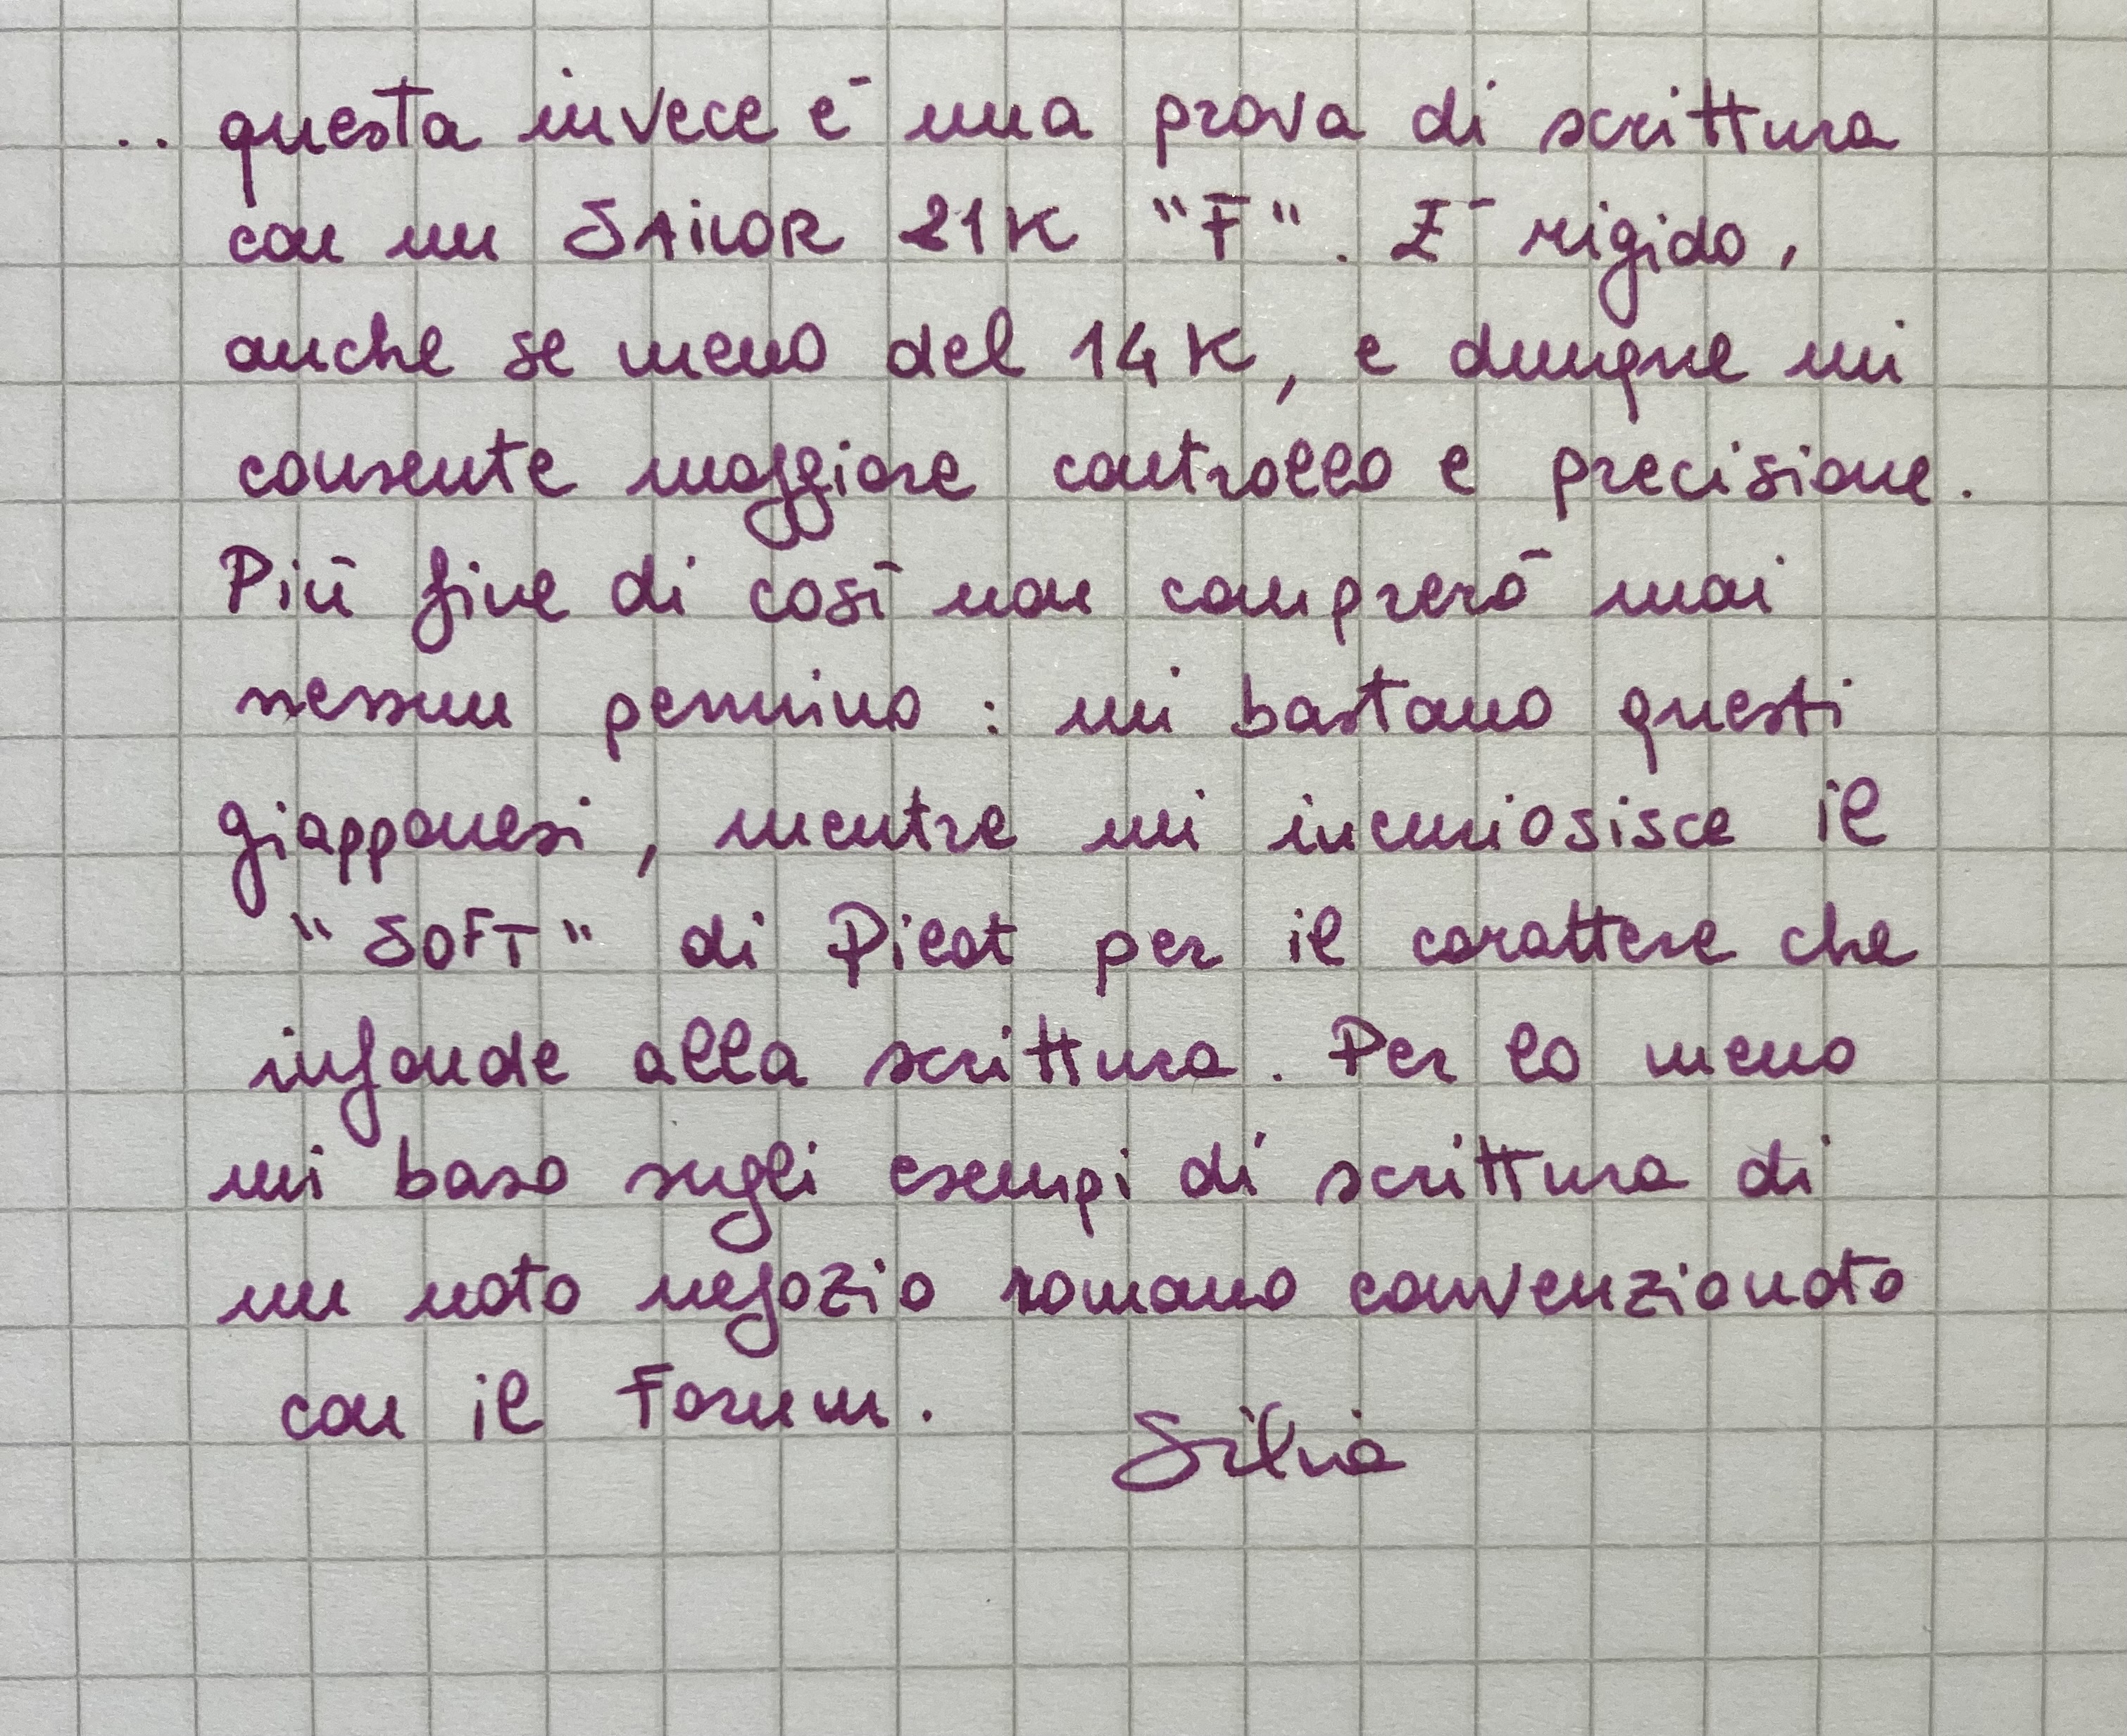 .. questa invece è una prova di scrittura
con un SAILOR 21K "F". È rigido,
anche se meno del 14K, e dunque mi
consente maggiore controllo e precisione.
Più fine di così non comprerò mai
nessun pennino: mi bastano questi
giapponesi, mentre mi incuriosisce il
"SOFT" di Pilot per il carattere che
infonde alla scrittura. Per lo meno
mi baso sugli esempi di scrittura di
un noto negozio romano convenzionato
con il Forum.
Silvia